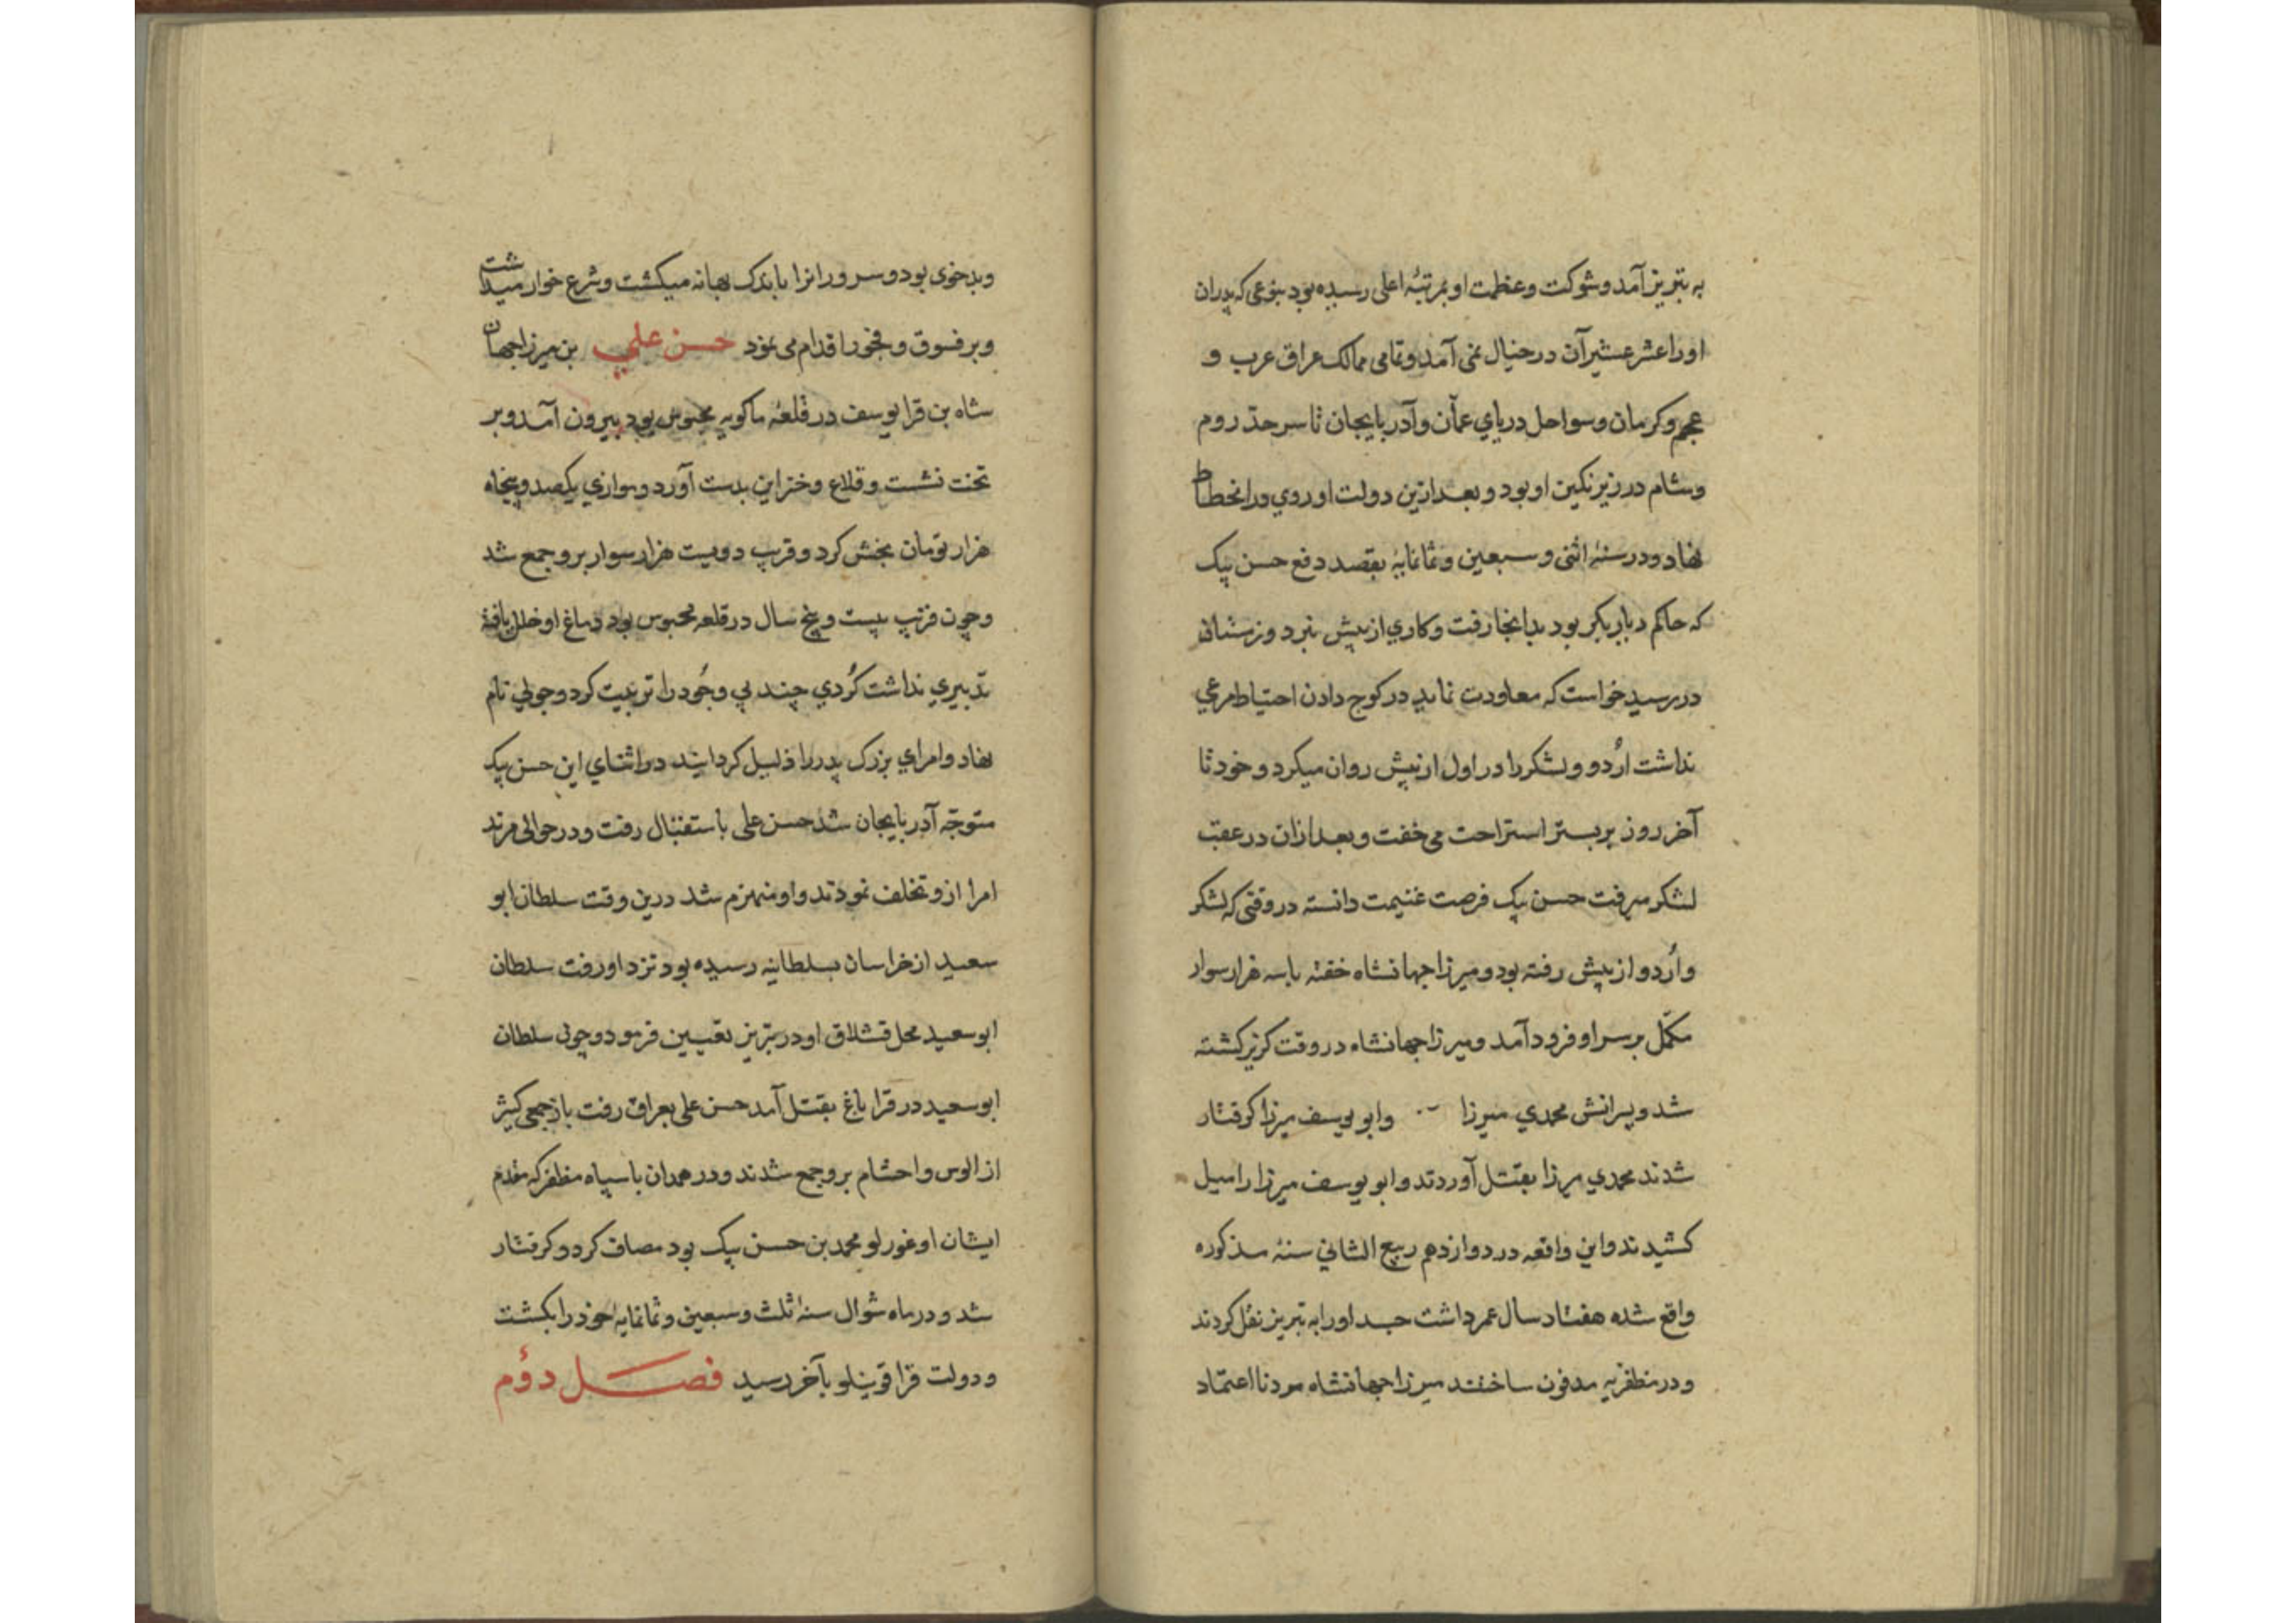 به تبریز آمد و شوکت و عظمت او بمرتبهٔ اعلی رسیده بود بنوعی که پدران
او را عشر عشیر آن در خیال نمی آمد و تمامی ممالک عراق عرب و
عجم و کرمان و سواحل دریاي عمان و آذربایجان تا سر حدّ روم
و شام در زیر نکین او بود و بعد ازین دولت او روي در انحطاط
نهاد و در سنهٔ اثنی و سبعین و ثمانمایهٔ بقصد دفع حسن بیک
که حاکم دیاربکر بود بدانجا رفت و کاري از پیش نبرد و زمستان
در رسید خواست که معاودت نماید در کوج دادن احتیاط مرعي
نداشت اُردو و لشکر را در اول از پیش روان میکرد و خود تا
آخر روز بر بستر استراحت می خفت و بعد ازان در عقب
لشکر میرفت حسن بیک فرصت غنیمت دانسته در وقتی که لشکر
و اُردو از پیش رفته بود و میرزا جهانشاه خفته با سه هزار سوار
مکمّل بر سر او فرود آمد و میرزا جهانشاه در وقت کریز کشته
شد و پسرانش محمدي میرزا و ابو یوسف میرزا کرفتار
شدند محمدي میرزا بقتل آوردند و ابو یوسف میرزا را میل
کشیدند و این واقعه در دوازدهم ربیع الثاني سنهٔ مذکوره
واقع شده هفتاد سال عمر داشت جسد او را به تبریز نقل کردند
و در مظفریه مدفون ساختند میرزا جهانشاه مرد نا اعتماد
و بدخوی بود و سرورانرا باندک بهانه میکشت و شرع خوار میداشت
و بر فسوق و فجور اقدام می نمود حسن علي بن میرزا جهان
شاه بن قرا یوسف در قلعهٔ ماکویه محبوس بود بیرون آمد و بر
تخت نشست و قلاع و خزاین بدست آورد و موازي یکصد و پنجاه
هزار تومان بخش کرد و قریب دویست هزار سوار برو جمع شد
و چون قریب بیست و پنج سال در قلعه محبوس بود دماغ او خلل یافته
تدبیري نداشت کُردي چند بي وجود را تربیت کرد و جولي نام
نهاد و امراي بزرک پدر را ذلیل کردانید در اثناي این حسن بیک
متوجّه آذربایجان شد حسن علی باستقبال رفت و در حوالی مرند
امرا ازو تخلف نمودند و او منهزم شد درین وقت سلطان ابو
سعید از خراسان بسلطانیه رسیده بود نزد او رفت سلطان
ابو سعید محل قشلاق او در تبریز تعیین فرمود و چون سلطان
ابو سعید در قرا باغ بقتل آمد حسن علی بعراق رفت باز جمعی کثیر
از الوس و احشام برو جمع شدند و در همدان با سپاه مظفر که مقدم
ایشان اوغورلو محمد بن حسن بیک بود مصاف کرد و کرفتار
شد و در ماه شوال سنهٔ ثلث و سبعین و ثمانمایه خود را بکشت
و دولت قرا قوینلو بآخر رسید فصل دوم